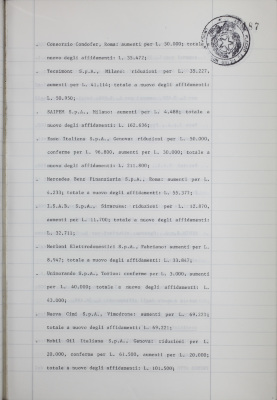 . Consorzio Condofer, Roma: aumenti per L. 30.000; totale a
nuovo degli affidamenti: L. 35.472;
. Tecnimont S.p.A., Milano: riduzioni per L. 35.227,
aumenti per L. 41.114; totale a nuovo degli affidamenti:
L. 50.930;
. SAIPEM S.p.A., Milano: aumenti per L. 4.408; totale a
nuovo degli affidamenti: L. 102.838;
. Esso Italiana S.p.A., Genova: riduzioni per L. 30.000,
conferme per L. 90.000, aumenti per L. 30.000; totale a
nuovo degli affidamenti: L. 211.000;
. Mercedes Benz Finanziaria S.p.A., Roma: aumenti per L.
4.235; totale a nuovo degli affidamenti: L. 55.377;
. riduzioni per L. 12.070,
aumenti per L. 11.706; totale a nuovo degli affidamenti:
L. 32.711;
. Merloni Elettrodomestici S.p.A., Fabriano: aumenti per L.
8.947; totale a nuovo degli affidamenti: L. 33.847;
. Torino: conferme per L. 3.000, aumenti
per L. 40.000; totale a nuovo degli affidamenti: L.
43.000;
. Nuova Cimi S.p.A., Vimodrone: aumenti per L. 69.221;
totale a nuovo degli affidamenti: L. 69.221;
. Mobil Oil Italiana S.p.A., Genova: riduzioni per L.
20.000, conferme per L. 61.500, aumenti per L. 20.000;
totale a nuovo degli affidamenti: L. 101.500;